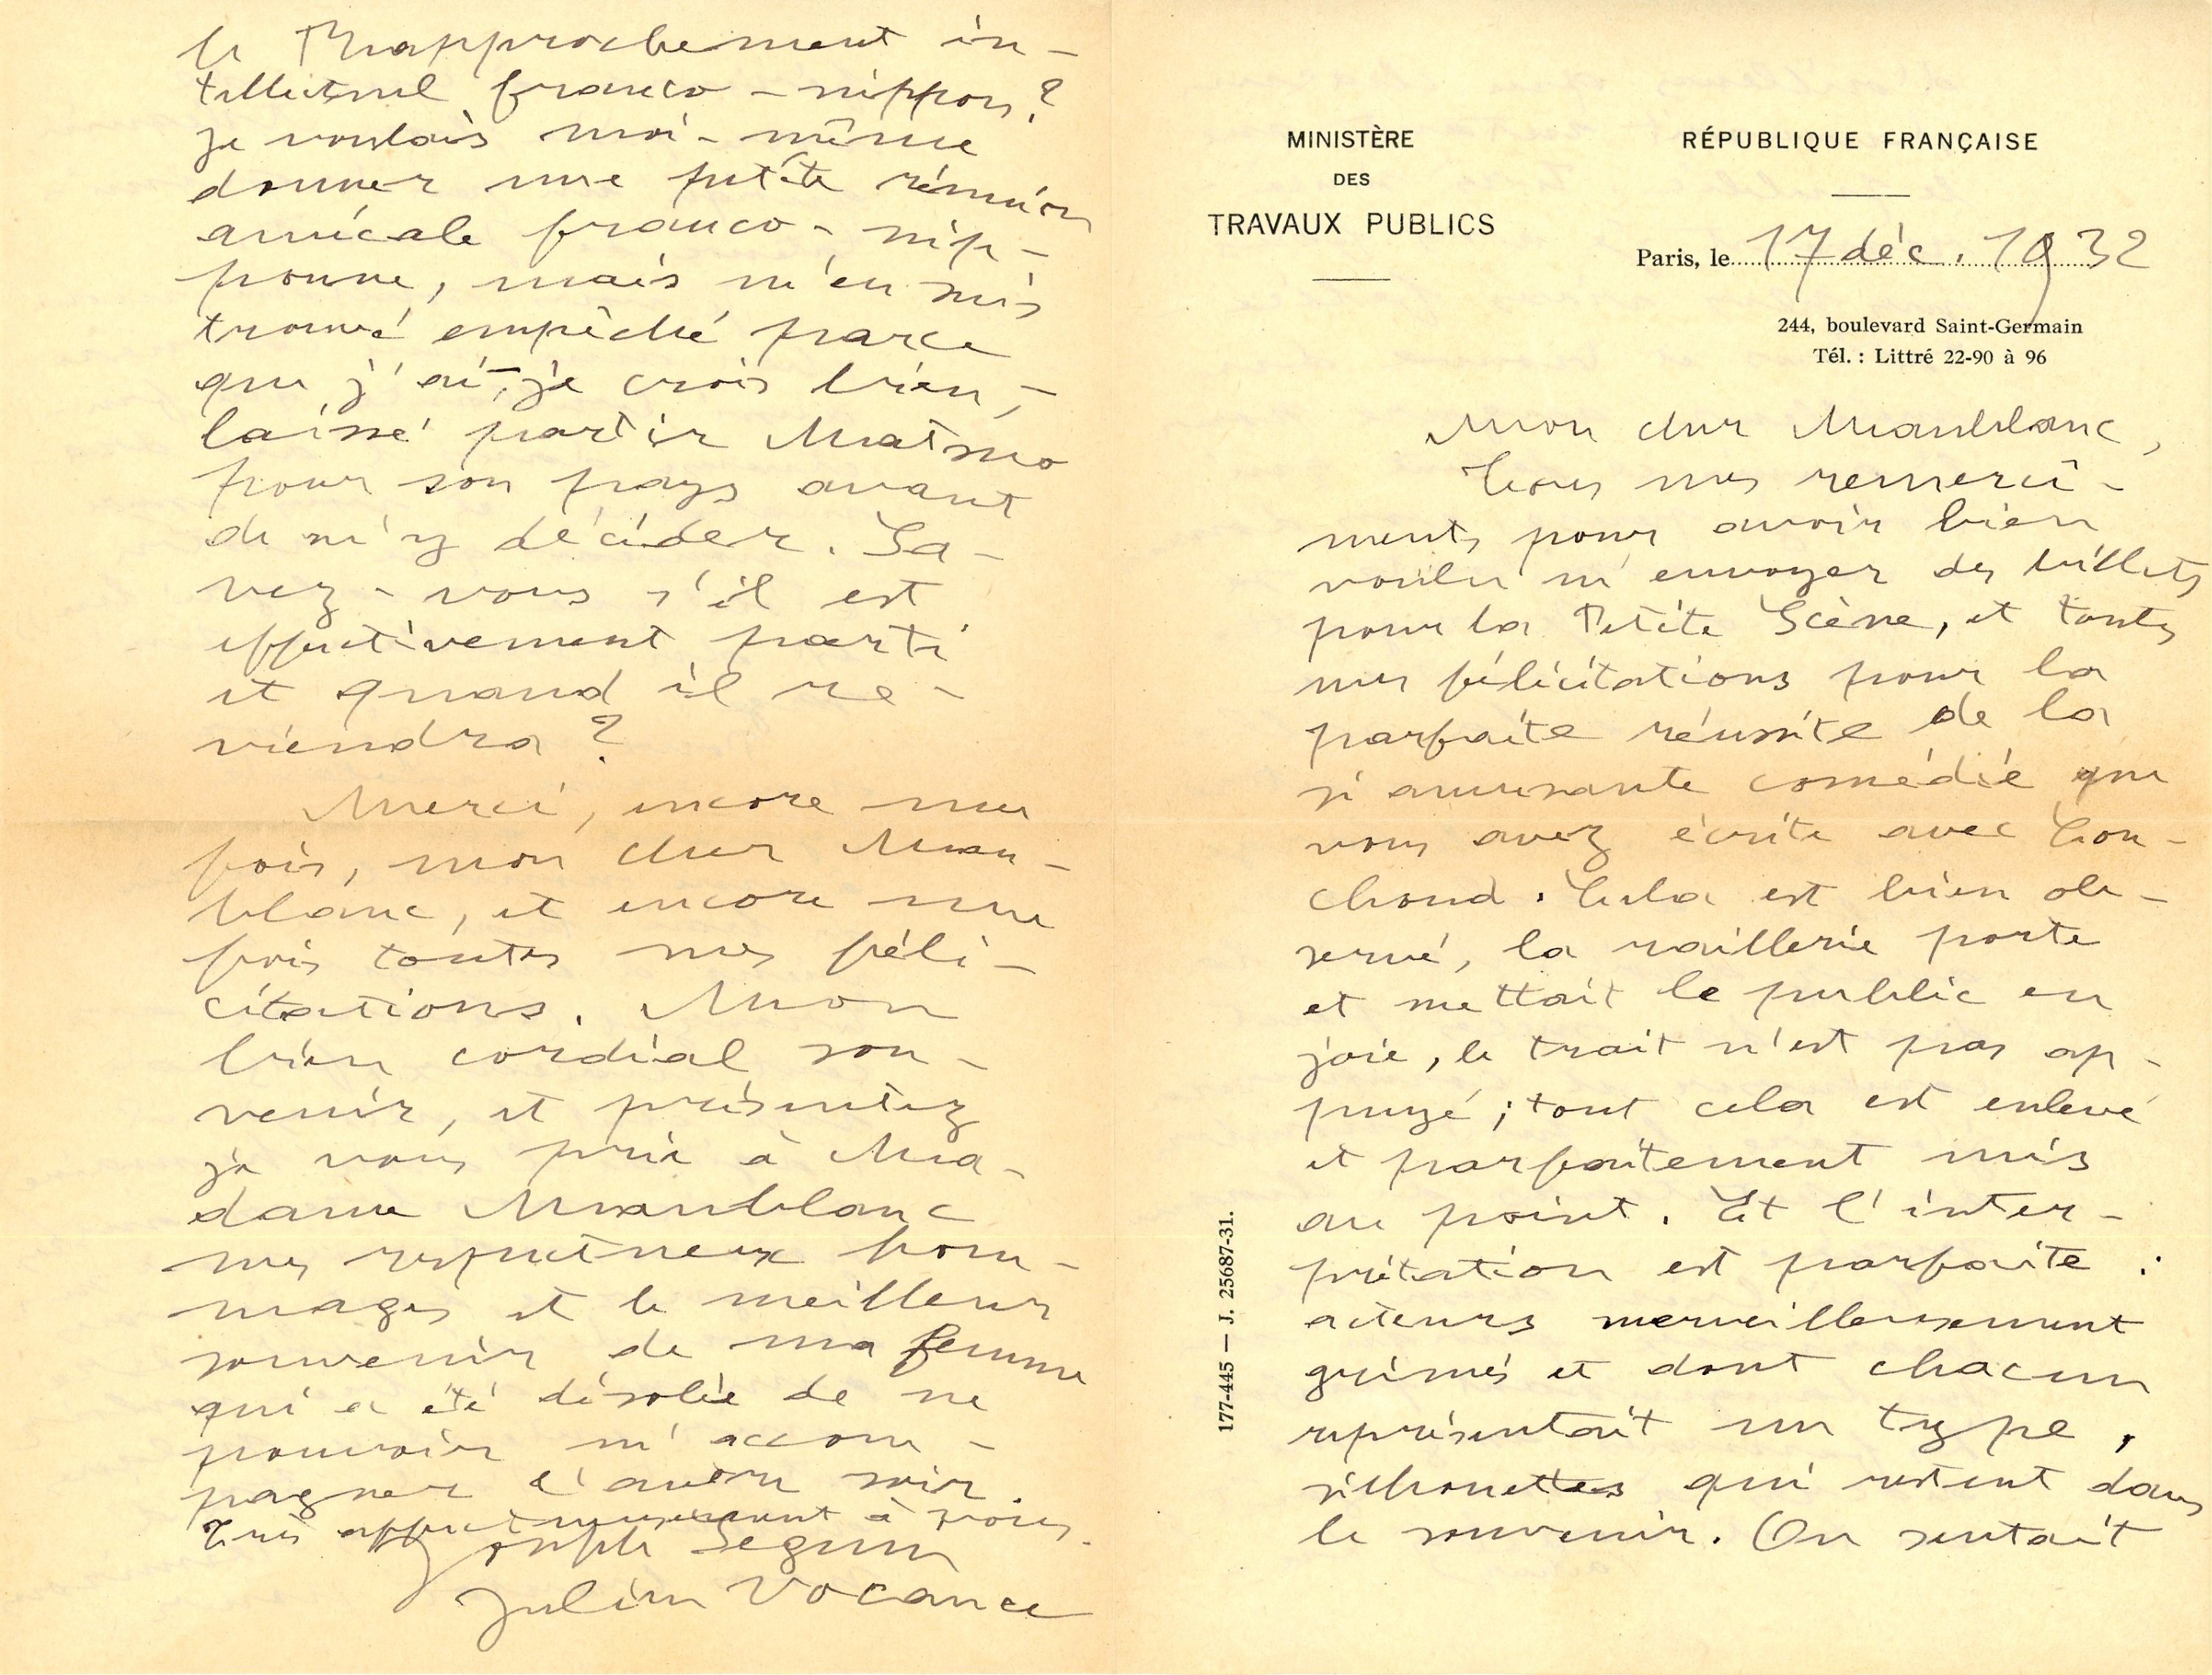 MINISTÈRE
DES
TRAVAUX PUBLICS
RÉPUBLIQUE FRANÇAISE
Paris, le 17 déc. 1932
244, boulevard Saint-Germain
Tél. : Littré 22-90 à 96
Mon cher Maublanc,
Tous mes remercî-
ments pour avoir bien
voulu m'envoyer des billets
pour la Petite Scène, et toutes
mes félicitations pour la
parfaite réussite de la
si amusante comédie que
vous avez écrite avec Cou-
choud. Cela est bien ob-
servé, la raillerie porte
et mettait le public en
joie, le trait n'est pas ap-
puyé ; tout cela est enlevé
et parfaitement mis
au point. Et l'inter-
prétation est parfaite :
acteurs merveilleusement
grimés et dont chacun
représentait un type,
silhouettes qui restent dans
le souvenir. On sentait
177-445 — J. 25687-31.
le Rapprochement in-
tellectuel franco-nippon ?
Je voulais moi-même
donner une petite réunion
amicale franco-nip-
ponne, mais m'en suis
trouvé empêché parce
que j'ai, - je crois bien, -
laissé partir Matsuo
pour son pays avant
de m'y décider. Sa-
vez-vous s'il est
effectivement parti
et quand il re-
viendra ?
Merci, encore une
fois, mon cher Mau-
blanc, et encore une
fois toutes mes féli-
citations. Mon
bien cordial sou-
venir, et présentez
je vous prie à Ma-
dame Maublanc
mes respectueux hom-
mages et le meilleur
souvenir de ma femme
qui a été désolée de ne
pouvoir m'accom-
pagner l'autre soir.
Très affectueusement à vous.
Joseph Seguin
Julien Vocance